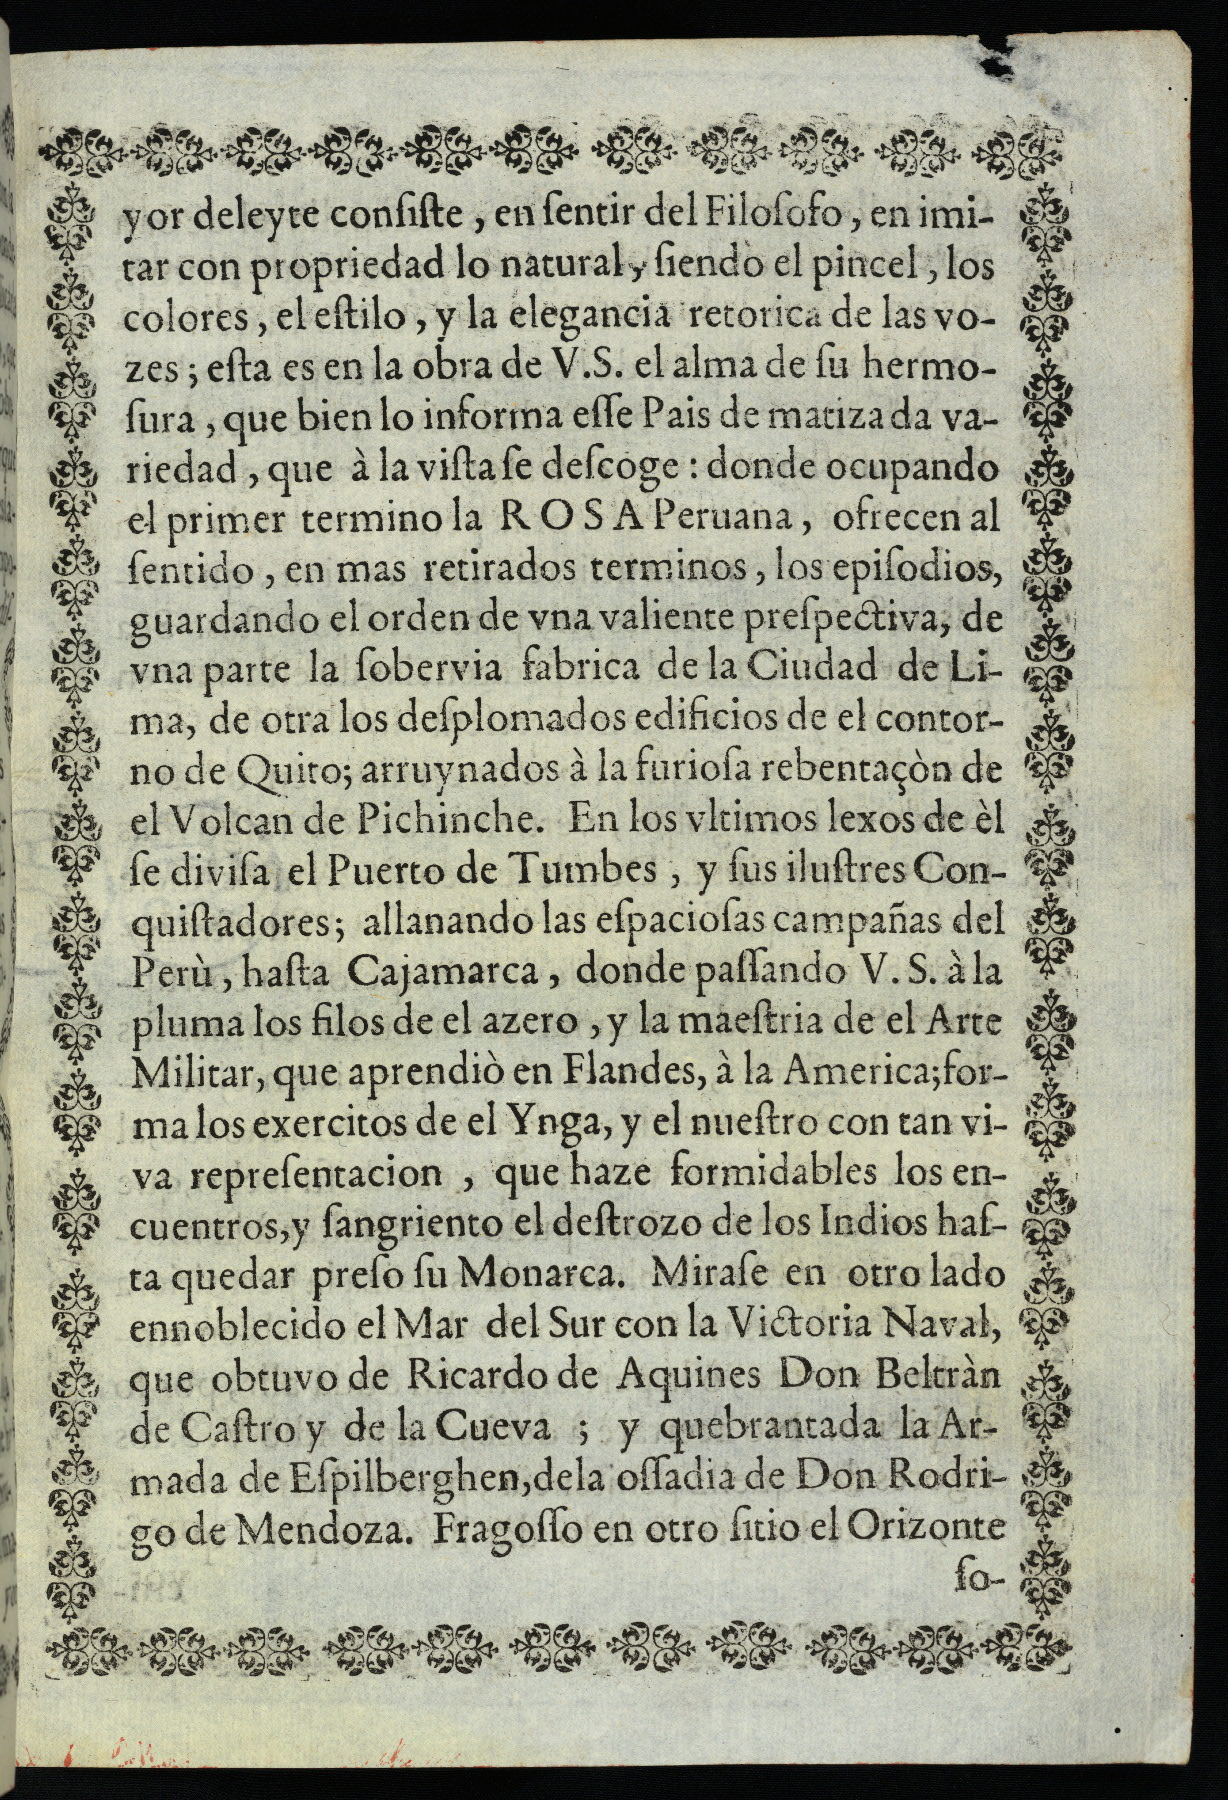 yor deleyte conſiſte, en ſentir del Filoſofo, en imi-
tar con propriedad lo natural, ſiendo el pincel, los
colores, el eſtilo, y la elegancia retorica de las vo-
zes; eſta es en la obra de V.S. el alma de ſu hermo-
ſura, que bien lo informa eſſe Pais de matizada va-
riedad, que à la viſta ſe deſcoge: donde ocupando
el primer termino la ROSA Peruana, ofrecen al
ſentido, en mas retirados terminos, los epiſodios,
guardando el orden de vna valiente preſpectiva, de
vna parte la ſobervia fabrica de la Ciudad de Li-
ma, de otra los deſplomados edificios de el contor-
no de Quito; arruynados à la furioſa rebentaçòn de
el Volcan de Pichinche. En los vltimos lexos de èl
ſe diviſa el Puerto de Tumbes, y ſus iluſtres Con-
quiſtadores; allanando las eſpacioſas campañas del
Perù, haſta Cajamarca, donde paſſando V.S. à la
pluma los filos de el azero, y la maeſtria de el Arte
Militar, que aprendiò en Flandes, à la America; for-
ma los exercitos de el Ynga, y el nueſtro con tan vi-
va repreſentacion, que haze formidables los en-
cuentros, y ſangriento el deſtrozo de los Indios haſ-
ta quedar preſo ſu Monarca. Miraſe en otro lado
ennoblecido el Mar del Sur con la Victoria Naval,
que obtuvo de Ricardo de Aquines Don Beltràn
de Caſtro y de la Cueva; y quebrantada la Ar-
mada de Eſpilberghen, dela oſſadia de Don Rodri-
go de Mendoza. Fragoſſo en otro ſitio el Orizonte
ſo-